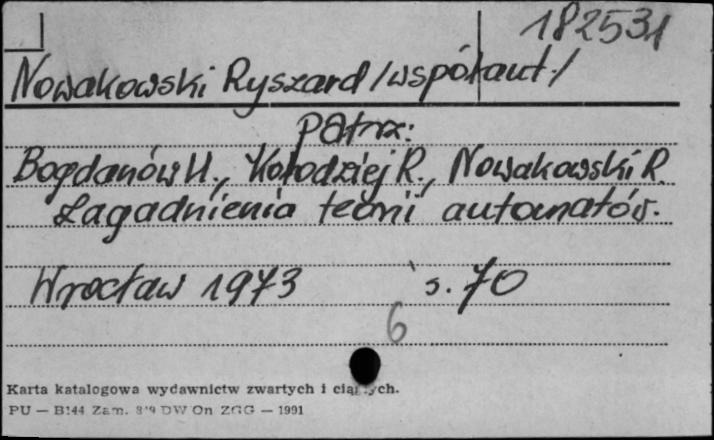 182531
Nowakowski Ryszard /współaut./
Patrz:
Bogdanów H., Kołodziej R., Nowakowski R.
Zagadnienia teorii automatów.
Wrocław 1973 s. 70
6
Karta katalogowa wydawnictw zwartych i ciągłych.
PU — B144 Zam. DW On ZGG — 1991